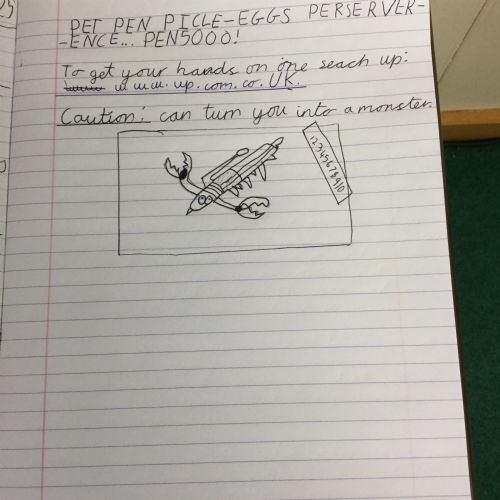 PET PEN PICLE-EGGS PERSERVER-
-ENCE... PEN5000!
To get your hands on one seach up:
www.up.com.co.UK.
Caution: can turn you into a monster.
12345678910